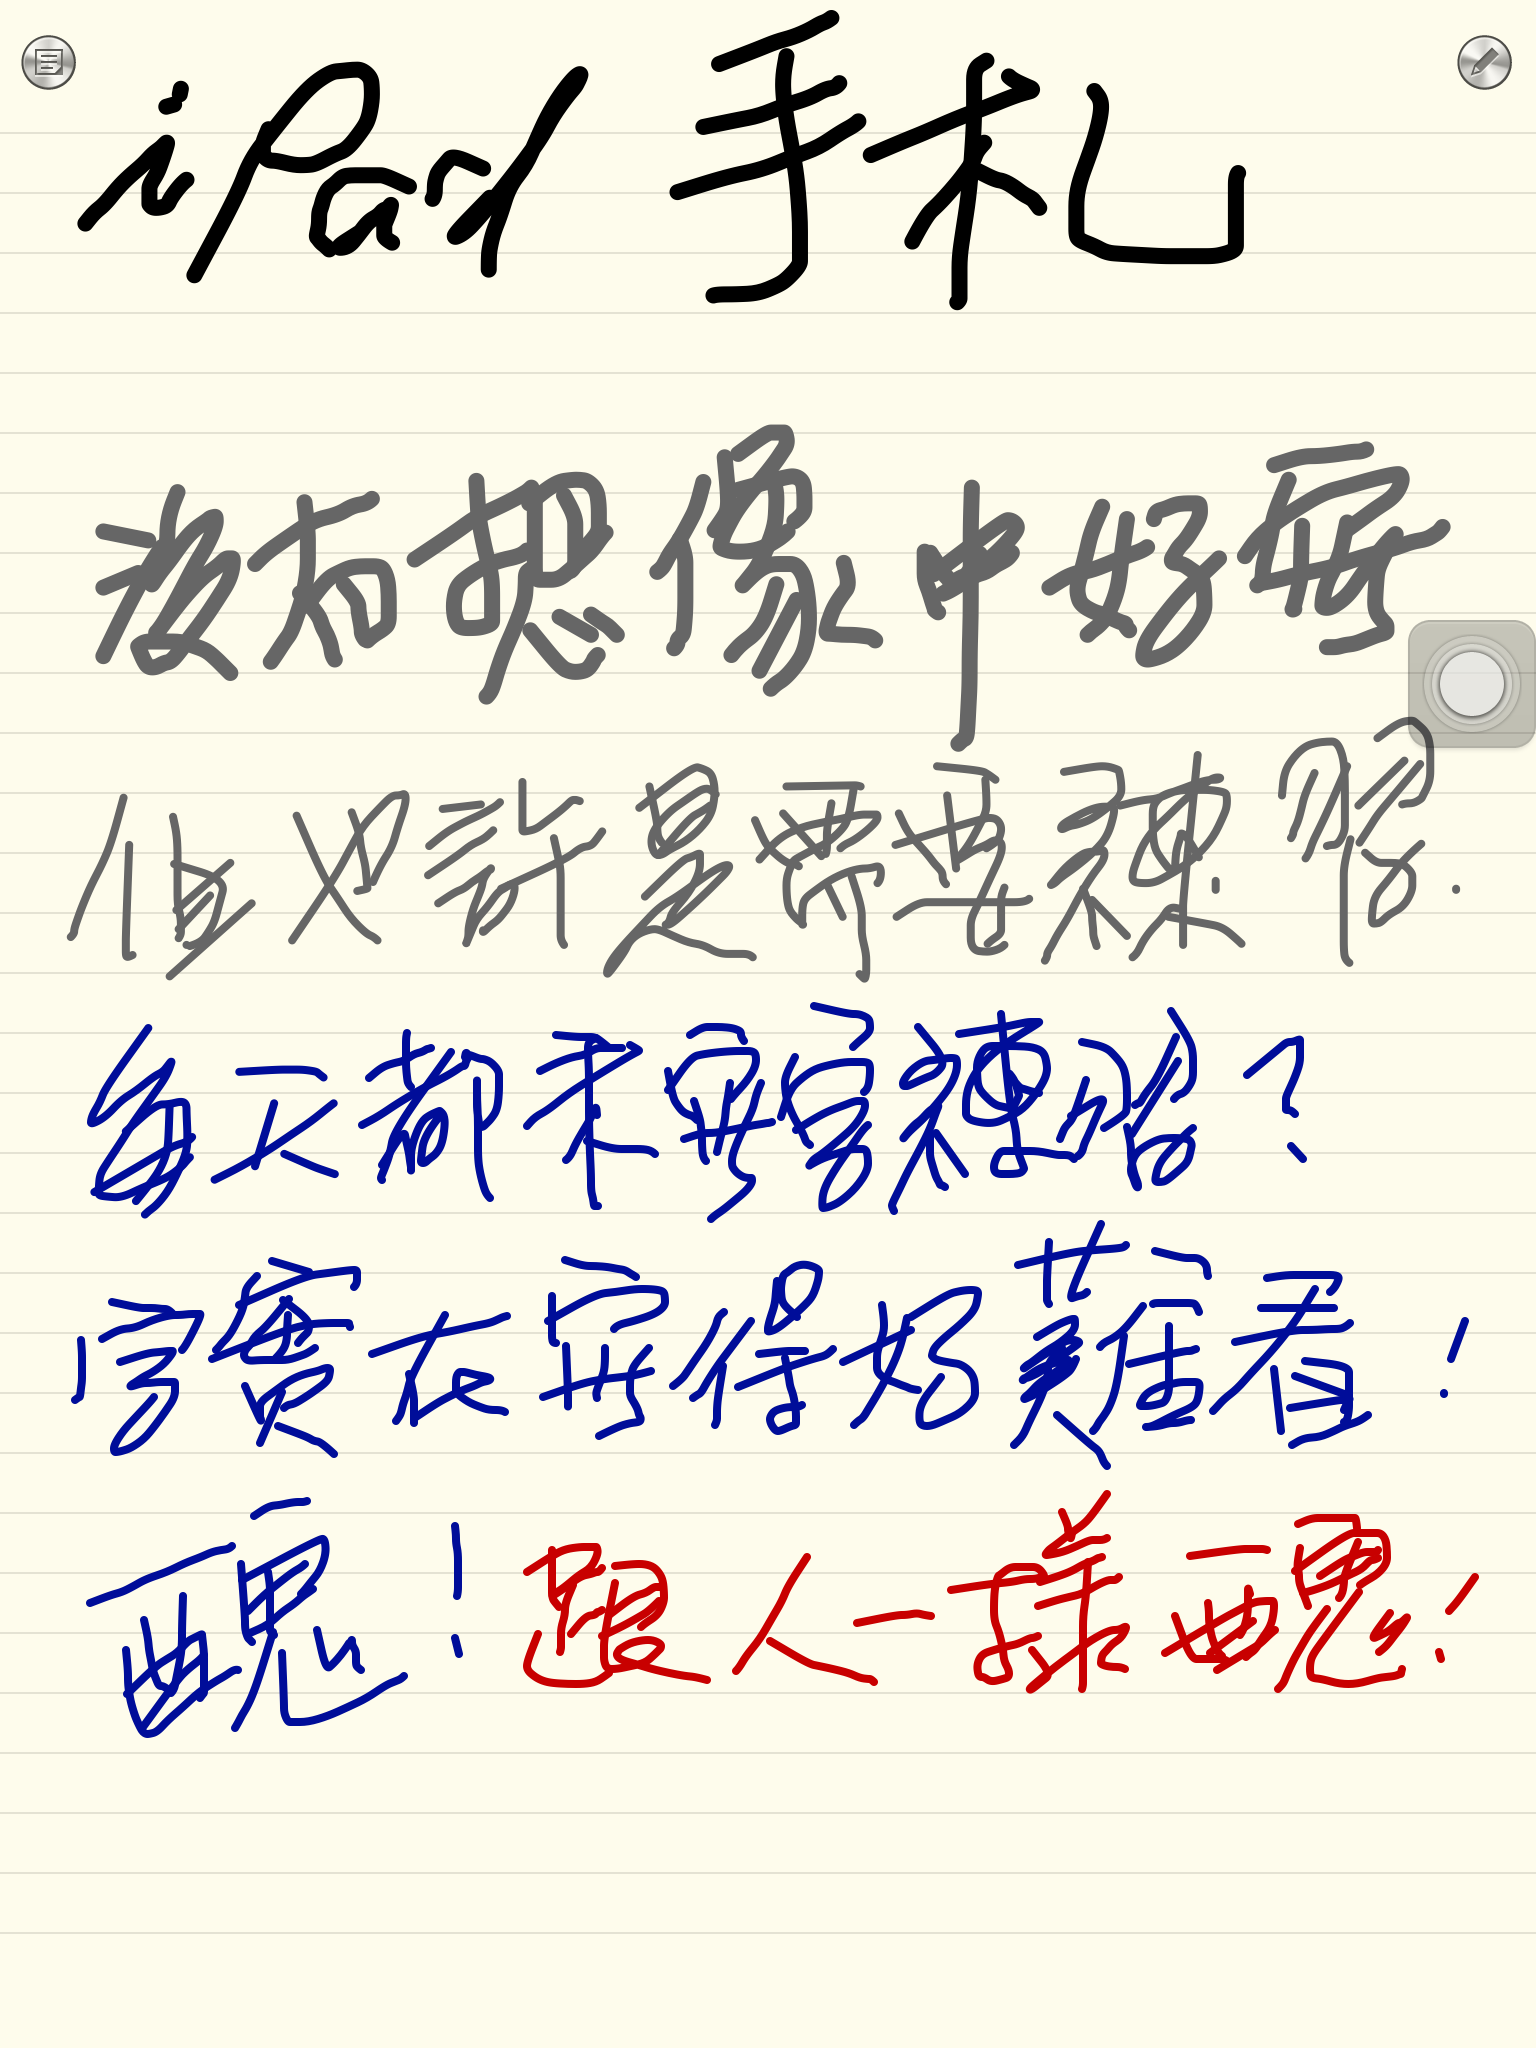 iPad 手札
沒有想像中好寫
但也許是需要練習.
每天都來寫字練習?
字實在寫得好難看!
醜!跟人一樣醜!